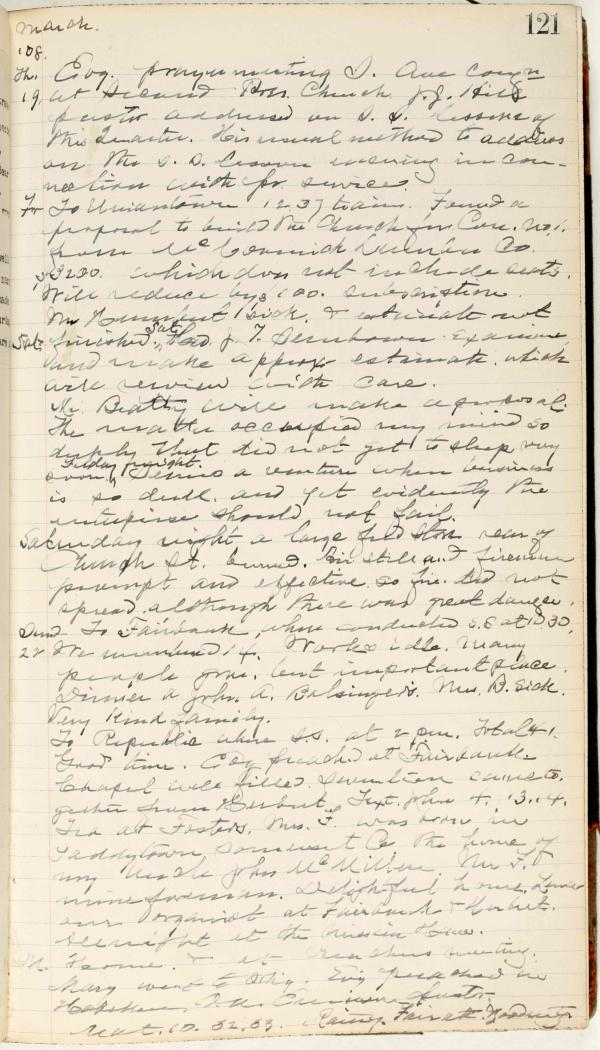 March.
121
'08.
Th. Evg. prayermeeting I. Ave Cong'n
19. at Second Pres. Church. J.J. Hill
pastor addressed on S. S. lessons of
this Quarter. His usual method to address
on the S. S. lesson evening in con-
nection with pr. services.
Fr. To Uniontown 12.37 train. Found a
proposal to build the Church for Con. No. 1.
from McCormick Lumber Co.
$3200. which does not include seats.
Will reduce by $100. subscription.
Mr sick. & estimate not
Sat. finished. Sat. had J. T. examine
and make approx estimate. which
will review with care.
Mr. Beatty will make a proposal.
The matter occupied my mind so
deeply that did not get to sleep very
soon Friday night. Seems a venture when business
is so dull. and yet evidently the
enterprise should not fail.
Saturday night a large feed store rear of
Church St. burned. Air still and firemen
prompt and effective so fire did not
spread. although there was great danger.
Sund. To Fairbank, where conducted S.S at 10.30,
22 We numbered 14. Works idle. Many
people gone. but important place.
Dinner a John. A. Balsinger's. Mrs. B. sick.
Very kind family.
To Republic where S.S. at 2 pm. Total 41.
Good time. Evg preached at Fairbank.
Chapel well filled. Seventeen came to-
gether from Herbert. Text. John 4. 13.14.
Tea at Fosters. Mrs. F. was born in
Paddytown Somerset Co. the home of
my Uncle John McMillen. Mr F. is
mine foreman. Delightful home.
our organist at Fairbank & Herbert.
at the Mission House.
M. Home. & at Teachers meeting.
Mary went to Evg preached in
pastor,
Mat. 10. 32.33. Rainy.